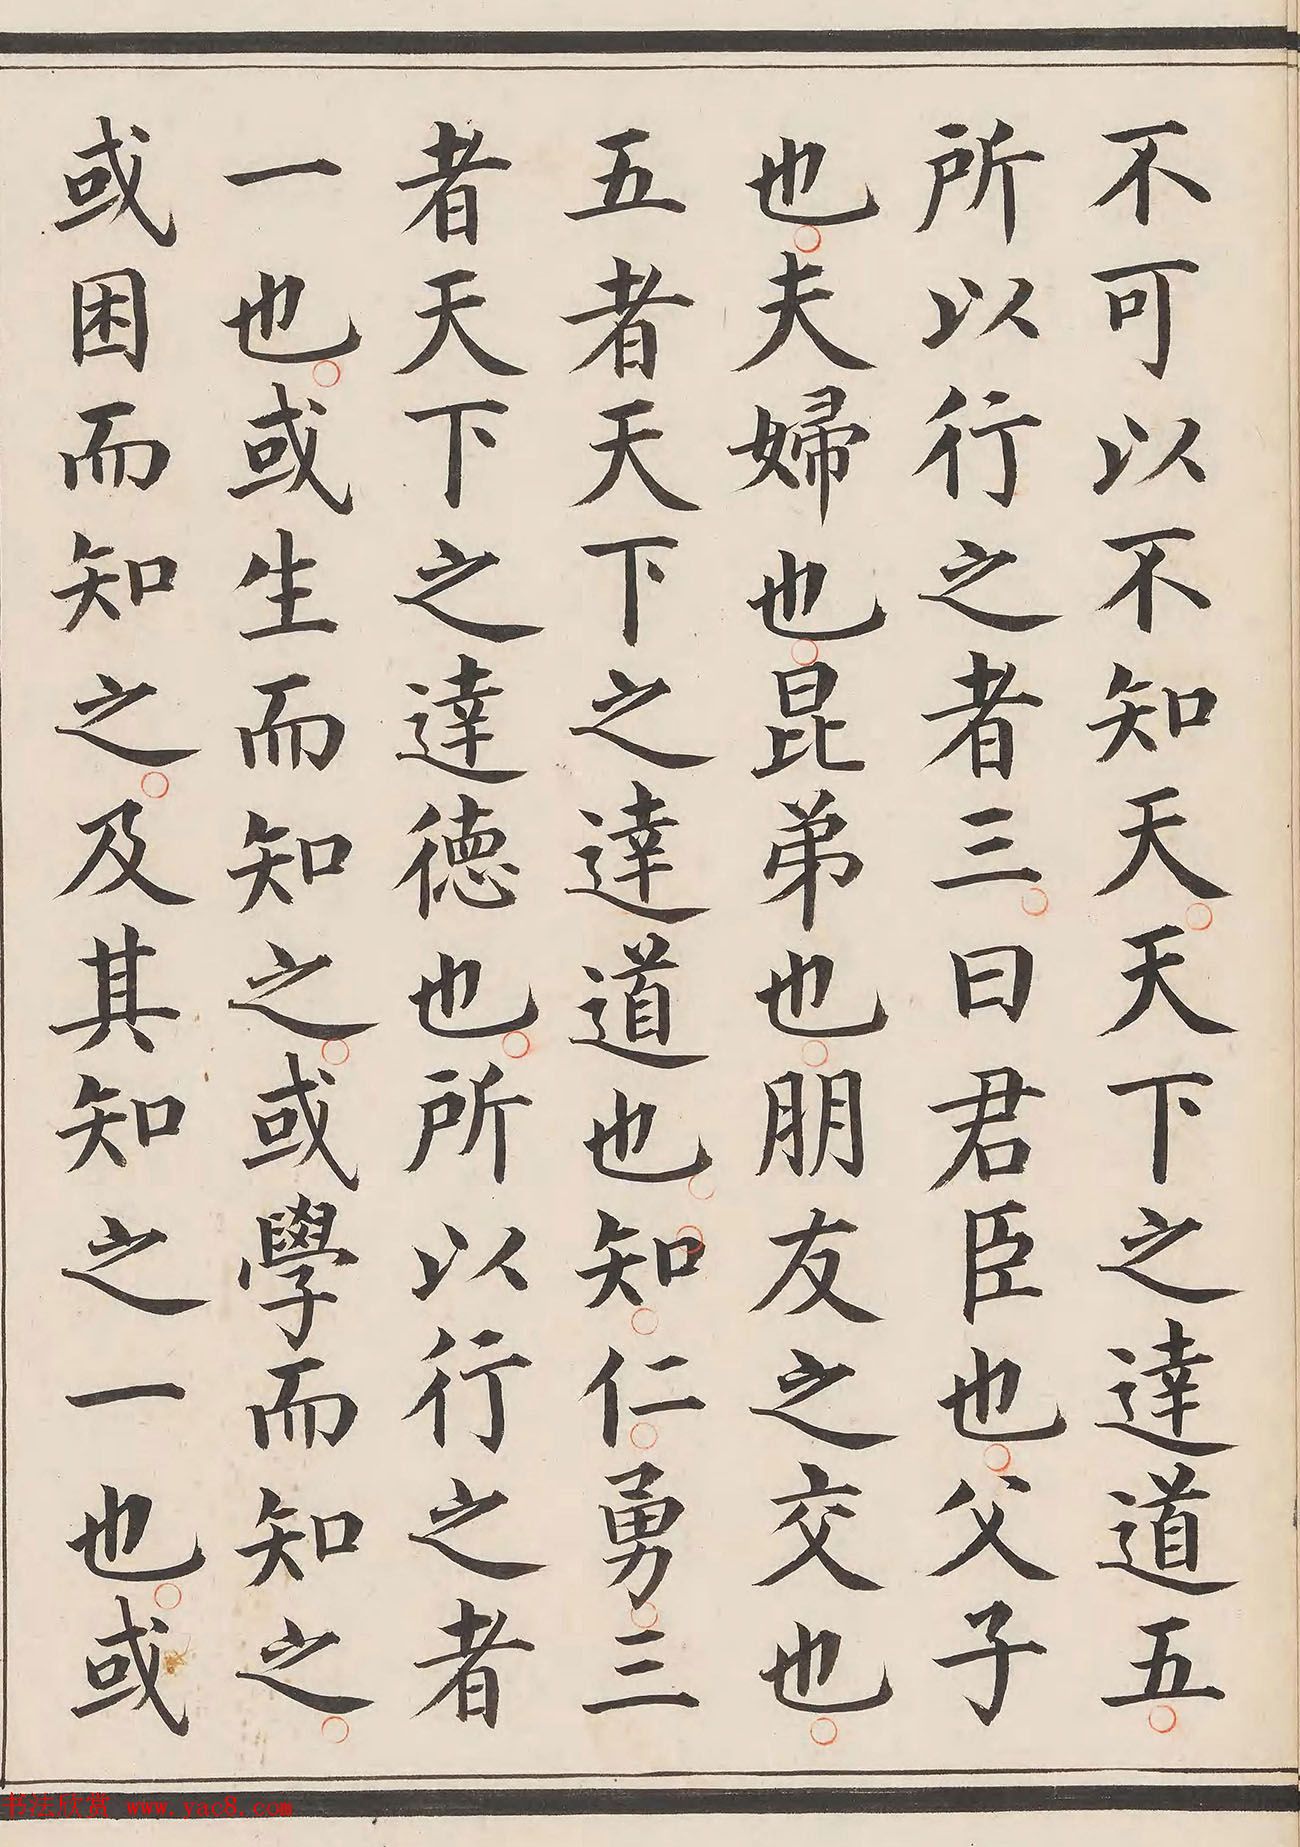 不可以不知天天下之達道五
所以行之者三曰君臣也父子
也夫婦也昆弟也朋友之交也
五者天下之達道也知仁勇三
者天下之達德也所以行之者
一也或生而知之或學而知之
或困而知之及其知之一也或
书法欣赏 www.yac8.com